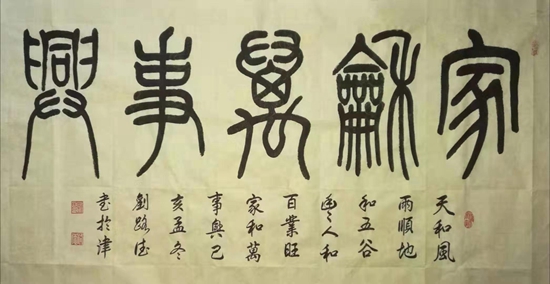 家龢萬事興
天和風
雨順地
和五谷
豐人和
百業旺
家和萬
事興己
亥孟冬
劉路
書於津